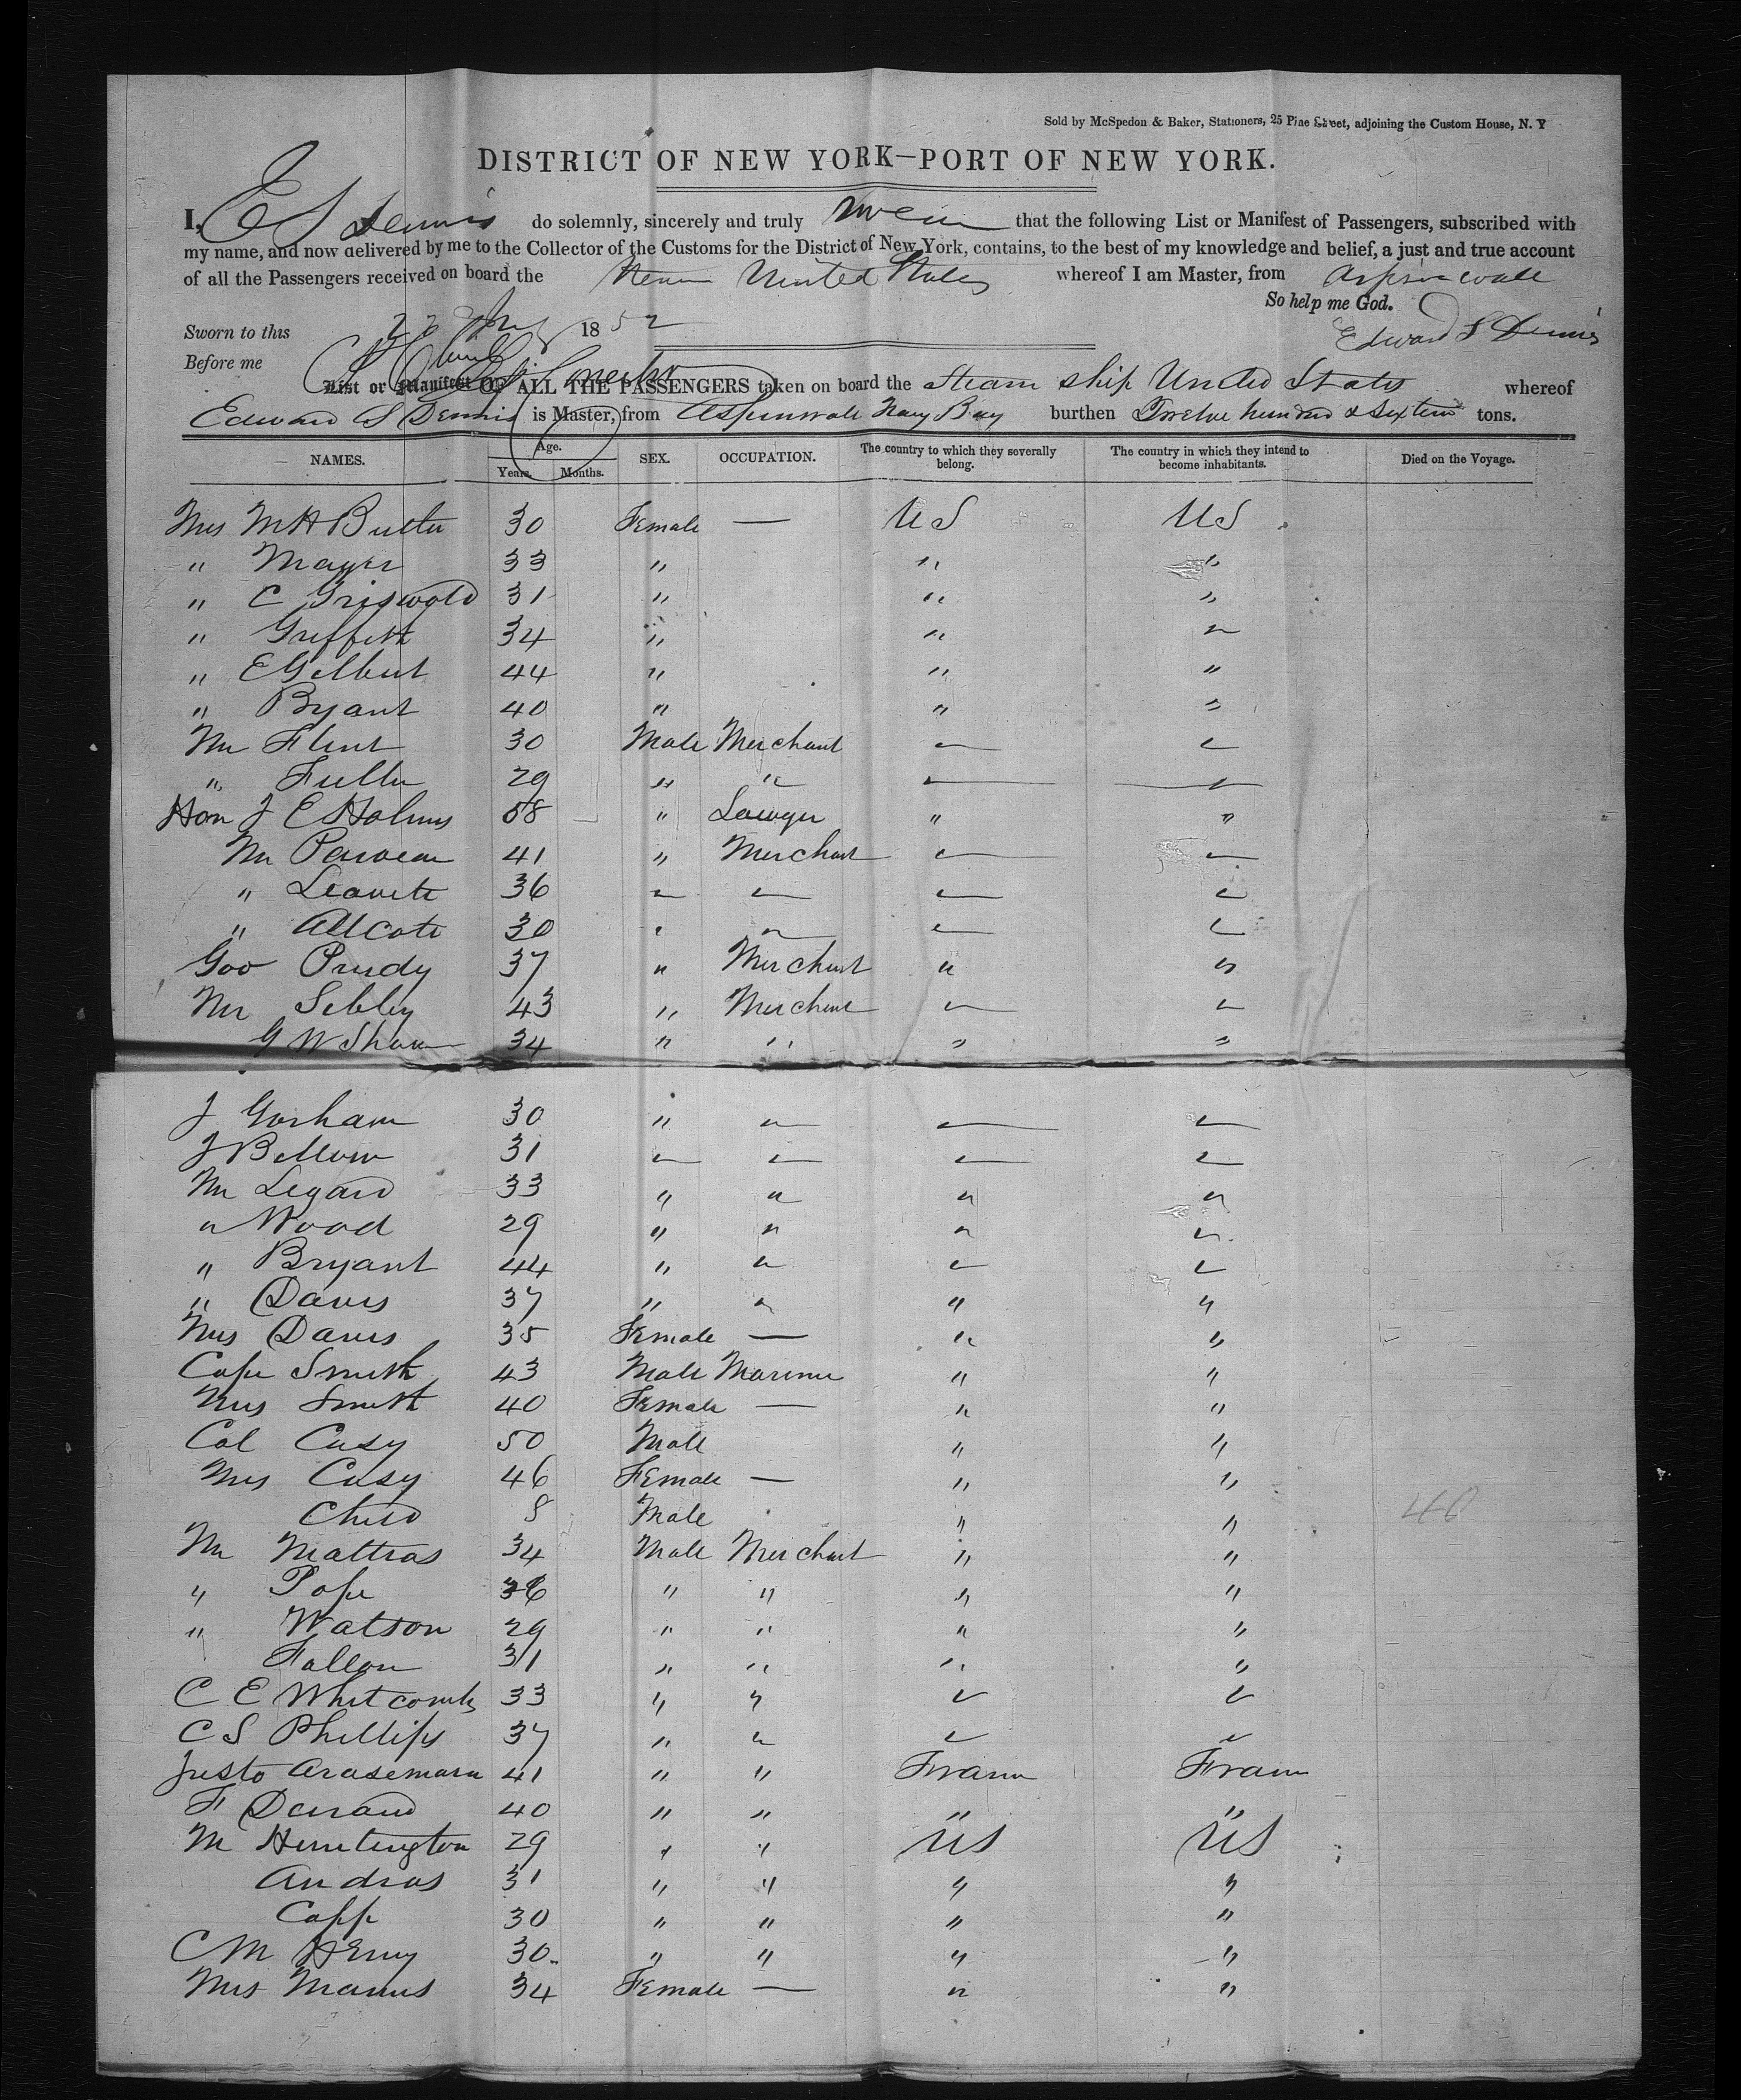 Sold by McSpedon & Baker, Stationers, 25 Pine Street, adjoining the Custom House, N. Y
DISTRICT OF NEW YORK—PORT OF NEW YORK.
I, E S Dennis do solemnly, sincerely and truly swear that the following List or Manifest of Passengers, subscribed with
my name, and now delivered by me to the Collector of the Customs for the District of New York, contains, to the best of my knowledge and belief, a just and true account
of all the Passengers received on board the United States whereof I am Master, from Aspinwall
So help me God.
Sworn to this 1852
Edward S Dennis
Before me
List or Manifest OF ALL THE PASSENGERS taken on board the Steam ship United States whereof
Edward S Dennis is Master, from Aspinwall Navy Bay burthen Twelve hundred & Sixteen tons.
NAMES. Age. Years. Months. SEX. OCCUPATION. The country to which they severally belong. The country in which they intend to become inhabitants. Died on the Voyage.
Mrs M H Butler 30 Female — U S U S
" Mayer 33 " " "
" C Griswold 31 " " "
" Griffith 34 " " "
" E Gilbert 44 " " "
" Bryant 40 " " "
Mr Flint 30 Male Merchant " "
" Fuller 29 " " " "
Hon J E Holmes 58 " Lawyer " "
Mr 41 " Merchant " "
" Leavett 36 " " " "
" Allcote 30 " " " "
Goo Purdy 37 " Merchant " "
Mr Sibley 43 " Merchant " "
G W Shaw 34 " " " "
J Gorham 30 " " " "
J Bellow 31 " " " "
Mr Legard 33 " " " "
" Wood 29 " " " "
" Bryant 44 " " " "
" Davis 37 " " " "
Mrs Davis 35 Female — " "
Capt Smith 43 Male Mariner " "
Mrs Smith 40 Female — " "
Col Casy 50 Male " "
Mrs Casy 46 Female — " "
Child 8 Male " "
40
Mr Mattras 34 Male Merchant " "
" Pope 36 " " " "
" Watson 29 " " " "
Fallon 31 " " " "
C E Whitcomb 33 " " " "
C S Phillips 37 " " " "
Justo Arosemana 41 " " France France
F Durand 40 " " " "
M Huntington 29 " " US US
Andras 31 " " " "
Capp 30 " " " "
C M Henry 30 " " " "
Mrs Manus 34 Female — " "